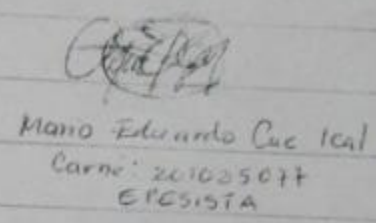 Mario Eduardo Cuc Ical
Carne: 201025077
EPESISTA